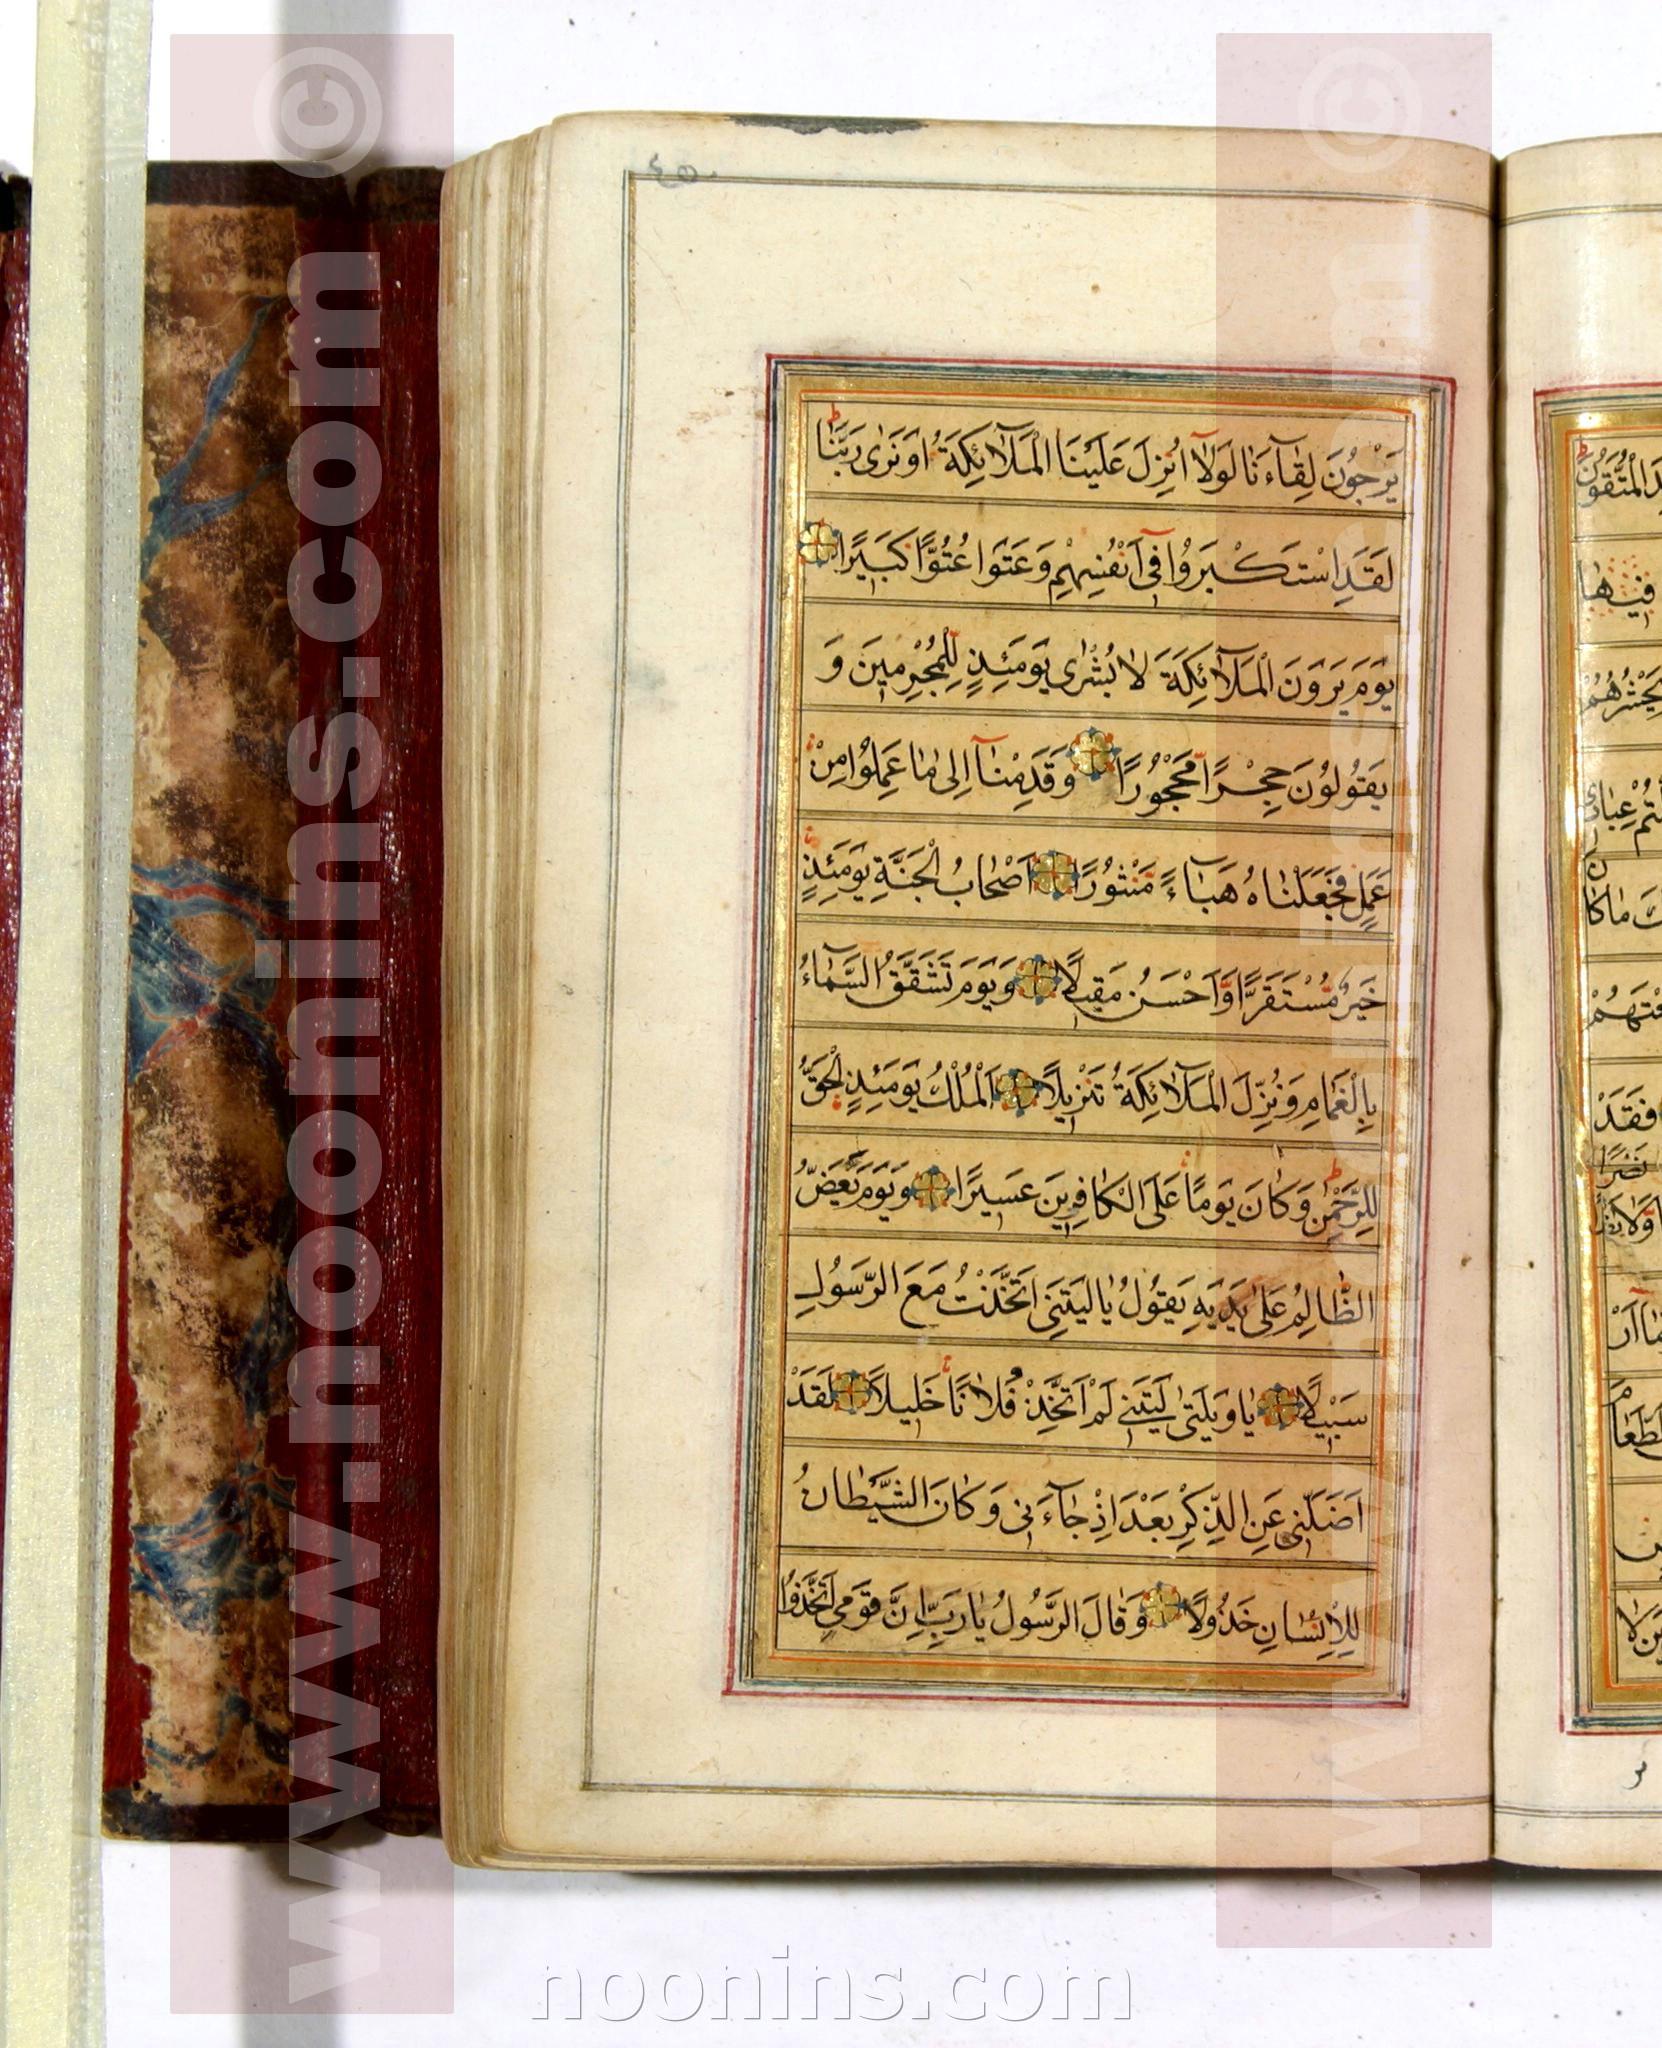 يَرْجُونَ لِقٰآءَنٰا لَوْلاٰۤ اُنْزِلَ عَلَيْنَا الْمَلاٰۤئِكَةُ اَوْ نَرٰى رَبَّنٰا
لَقَدِ اسْتَكْبَرُوا فِىۤ اَنْفُسِهِمْ وَعَتَوْا عُتُوًّا كَبِيرًا
يَوْمَ يَرَوْنَ الْمَلاٰۤئِكَةَ لاٰ بُشْرٰى يَوْمَئِذٍ لِلْمُجْرِمِينَ وَ
يَقُولُونَ حِجْرًا مَحْجُورًا وَقَدِمْنٰاۤ اِلىٰ مٰا عَمِلُوا مِنْ
عَمَلٍ فَجَعَلْنٰاهُ هَبٰاۤءً مَنْثُورًا اَصْحٰابُ الْجَنَّةِ يَوْمَئِذٍ
خَيْرٌ مُسْتَقَرًّا وَاَحْسَنُ مَقِيلاً وَيَوْمَ تَشَقَّقُ السَّمٰاۤءُ
بِالْغَمٰامِ وَنُزِّلَ الْمَلاٰۤئِكَةُ تَنْزِيلاً اَلْمُلْكُ يَوْمَئِذٍ الْحَقُّ
لِلرَّحْمٰنِ وَكٰانَ يَوْمًا عَلَى الْكٰافِرِينَ عَسِيرًا وَيَوْمَ يَعَضُّ
الظّٰالِمُ عَلىٰ يَدَيْهِ يَقُولُ يٰا لَيْتَنِى اتَّخَذْتُ مَعَ الرَّسُولِ
سَبِيلاً يٰا وَيْلَتىٰ لَيْتَنِى لَمْ اَتَّخِذْ فُلاٰنًا خَلِيلاً لَقَدْ
اَضَلَّنِى عَنِ الذِّكْرِ بَعْدَ اِذْ جٰآءَنِى وَكٰانَ الشَّيْطٰانُ
لِلْاِنْسٰانِ خَذُولاً وَقٰالَ الرَّسُولُ يٰا رَبِّ اِنَّ قَوْمِى اتَّخَذُوا
www.noonins.com ©
www.noonins.com ©
noonins.com